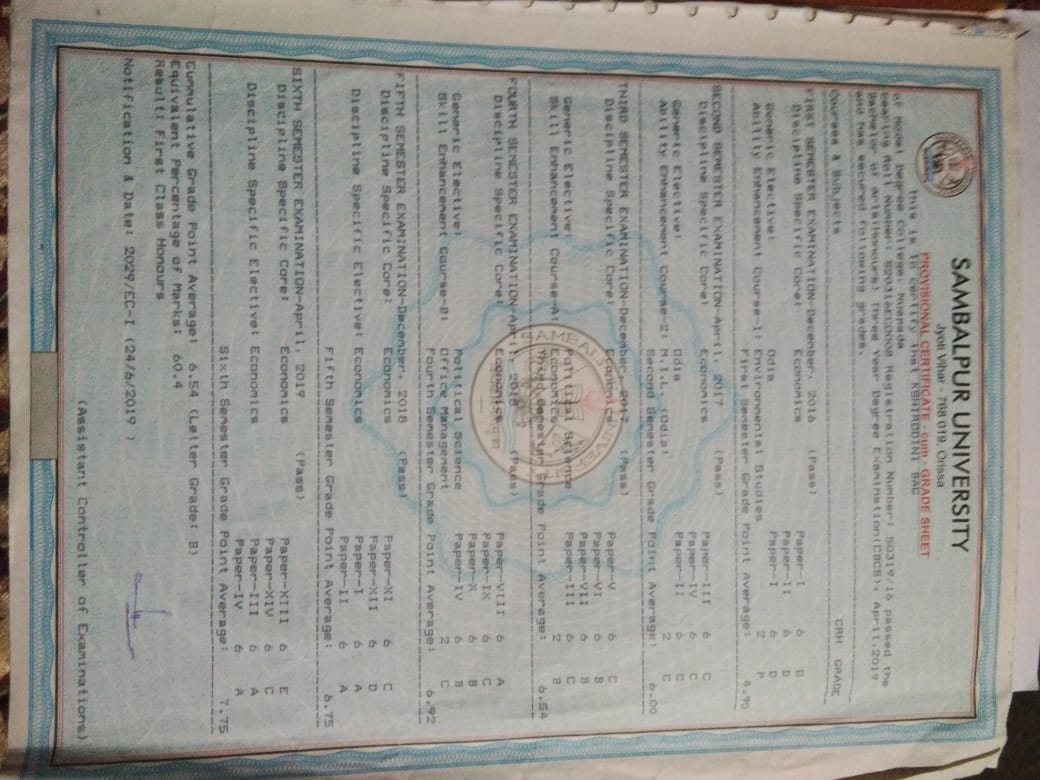 SAMBALPUR UNIVERSITY
Jyoti Vihar - 768 019, Orissa
PROVISIONAL CERTIFICATE - cum - GRADE SHEET
This is To certify that KSHIRODINI BAG
of Model Degree College, Nuapada
bearing Roll Number: Registration Number: 50319/16 passed the
Bachelor of Arts(Honours) Three Year Degree Examination(CBCS), April,2019
and has secured following grades.
Courses & Subjects CRH GRADE
FIRST SEMESTER EXAMINATION-December, 2016 (Pass)
Discipline Specific Core: Economics Paper-I 6 D
Paper-II 6 D
Generic Elective: Odia Paper-I 6 D
Ability Enhancement Course-1: Environmental Studies 2 P
First Semester Grade Point Average: 4.90
SECOND SEMESTER EXAMINATION-April, 2017 (Pass)
Discipline Specific Core: Economics Paper-III 6 C
Paper-IV 6 C
Generic Elective: Odia Paper-II 6 C
Ability Enhancement Course-2: M.I.L. (Odia) 2 C
Second Semester Grade Point Average: 6.00
THIRD SEMESTER EXAMINATION-December, 2017 (Pass)
Discipline Specific Core: Economics Paper-V 6 C
Paper-VI 6 B
Paper-VII 6 C
Generic Elective: Political Science Paper-III 6 C
Skill Enhancement Course-A: 2 B
Third Semester Grade Point Average: 6.54
FOURTH SEMESTER EXAMINATION-April, 2018 (Pass)
Discipline Specific Core: Economics Paper-VIII 6 A
Paper-IX 6 C
Paper-X 6 B
Generic Elective: Political Science Paper-IV 6 B
Skill Enhancement Course-B: Office Management 2 C
Fourth Semester Grade Point Average: 6.92
FIFTH SEMESTER EXAMINATION-December, 2018 (Pass)
Discipline Specific Core: Economics Paper-XI 6 C
Paper-XII 6 D
Discipline Specific Elective: Economics Paper-I 6 A
Paper-II 6 A
Fifth Semester Grade Point Average: 6.75
SIXTH SEMESTER EXAMINATION-April, 2019 (Pass)
Discipline Specific Core: Economics Paper-XIII 6 E
Paper-XIV 6 C
Discipline Specific Elective: Economics Paper-III 6 A
Paper-IV 6 A
Sixth Semester Grade Point Average: 7.75
Cummulative Grade Point Average: 6.54 (Letter Grade: B)
Equivalent Percentage of Marks: 60.4
Result: First Class Honours
Notification & Date: 2029/EC-I (24/6/2019 )
(Assistant Controller of Examinations)